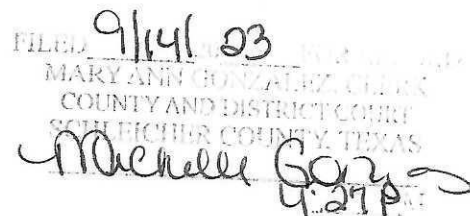 FILED 9/14/ 2023 FOR RECORD
MARY ANN GONZALEZ, CLERK
COUNTY AND DISTRICT COURT
SCHLEICHER COUNTY, TEXAS
Michelle
4:27 P M